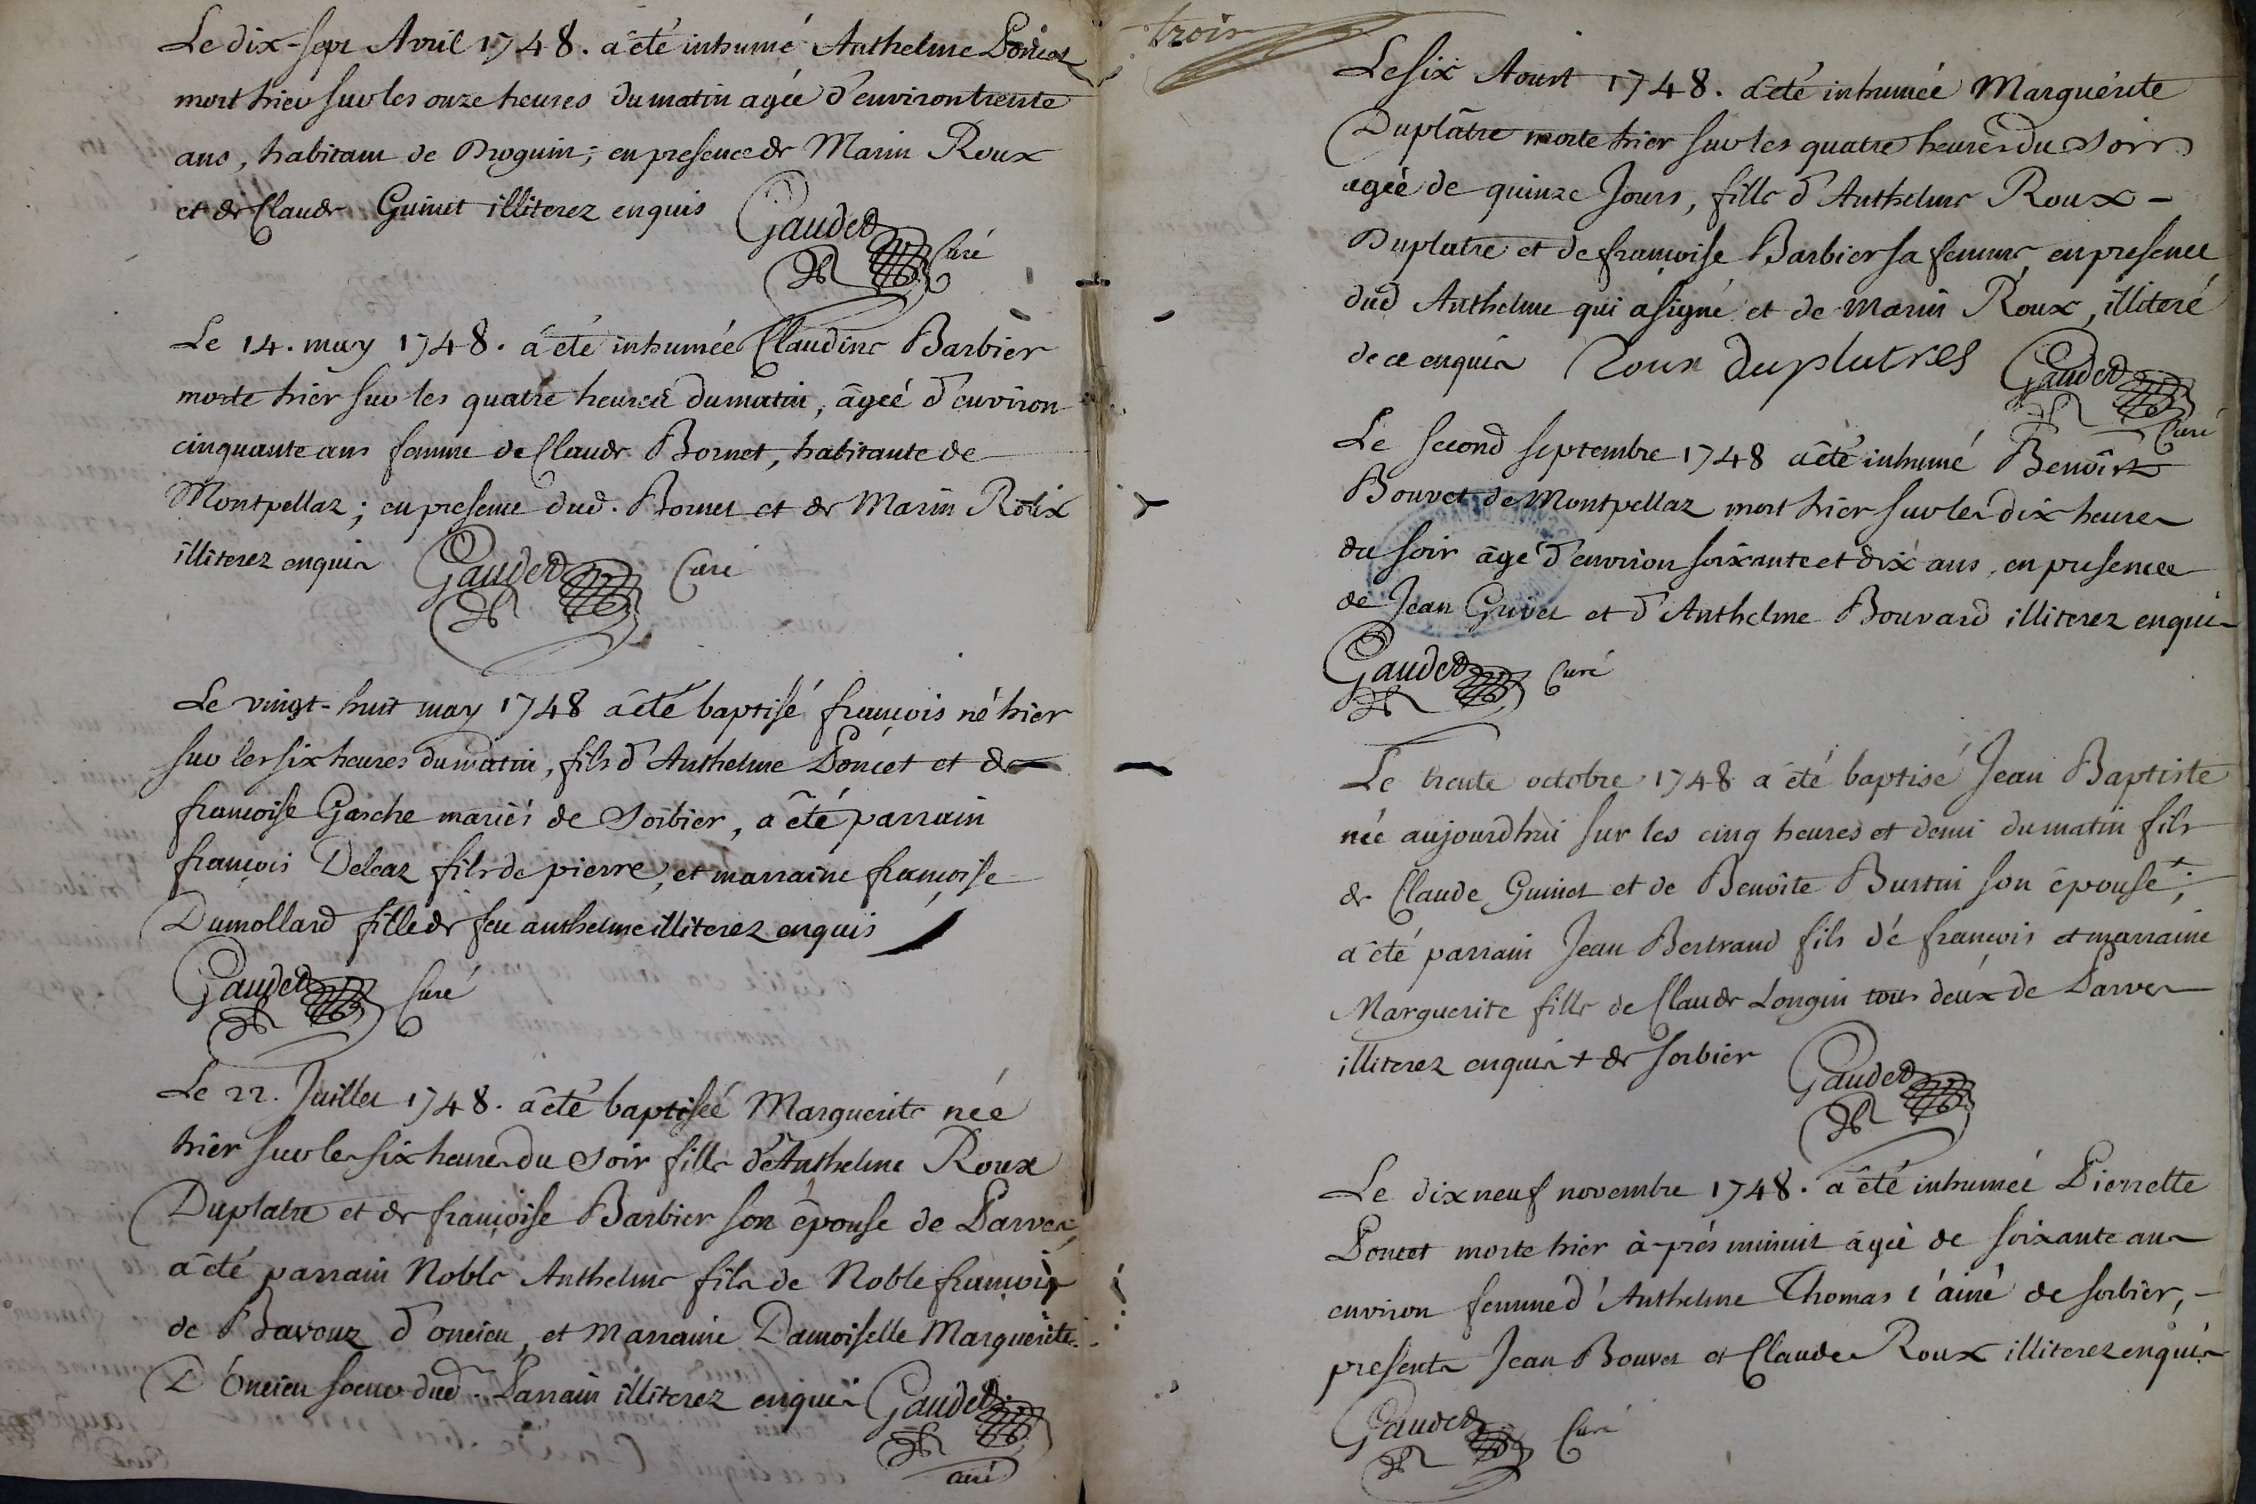 Le dix-sept Avril 1748. a été inhumé Anthelme Poncet
mort hier sur les onze heures du matin agée d'environ trente
ans, habitant de Proguin; en presence de Marin Roux
et de Claude Guinet illiterez enquis Gaudet
Curé
Le 14. may 1748. a été inhumée Claudine Barbier
morte hier sur les quatre heures du matin, âgeé d'environ
cinquante ans femme de Claude Bornet, habitante de
Montpellaz; en presence dud. Bornet et de Marin Roux
illiterez enquis Gaudet Curé
Le vingt-huit may 1748 a été baptisé françois né hier
sur les six heures du matin, fils d'Anthelme Poncet et de
françoise Garche mariés de Sorbier, a été parrain
françois Deleaz fils de pierre, et marraine françoise
Dumollard fille de feu anthelme illiterez enquis
Gaudet Curé
Le 22. Juillet 1748. a été baptiseé Marguerite née
hier sur les six heures du soir fille d'Anthelme Roux
Duplatre et de françoise Barbier son épouse de Parves,
a été parrain Noble Anthelme fils de Noble françois
de Bavouz d'oncieu, et Marraine Damoiselle Marguerite
D'Oncieu soeur dud. Parrain illiterez enquis Gaudet
curé
trois
Le six Aoust 1748. a été inhumeé Marguerite
Duplâtre morte hier sur les quatre heures du soir
ageé de quinze Jours, fille d'Anthelme Roux
Duplatre et de françoise Barbier sa femme en presence
dud Anthelme qui a signé et de marin Roux, illiteré
de ce enquis Roux duplatres Gaudet
Curé
Le second septembre 1748 a été inhumé Benoît
Bouvet de Montpellaz mort hier sur les dix heures
du soir âgé d'environ soixante et dix ans, en presence
de Jean Guinet et d'Anthelme Bouvard illiterez enquis
Gaudet Curé
Le trente octobre 1748 a été baptisé Jean Baptiste
née aujourdhui sur les cinq heures et demi du matin fils
de Claude Guinet et de Benoîte Burtin son épouse +;
a été parrain Jean Bertrand fils de françois et marraine
Marguerite fille de Claude Longin tous deux de Parves
illiterez enquis + de sorbier Gaudet
Le dix neuf novembre 1748. a été inhumeé Pierrette
Poncet morte hier à-prés minuit âgeé de soixante ans
environ femme d'Anthelme Thomas l'ainé de sorbier,
presents Jean Bouvet et Claude Roux illiterez enquis
Gaudet Curé